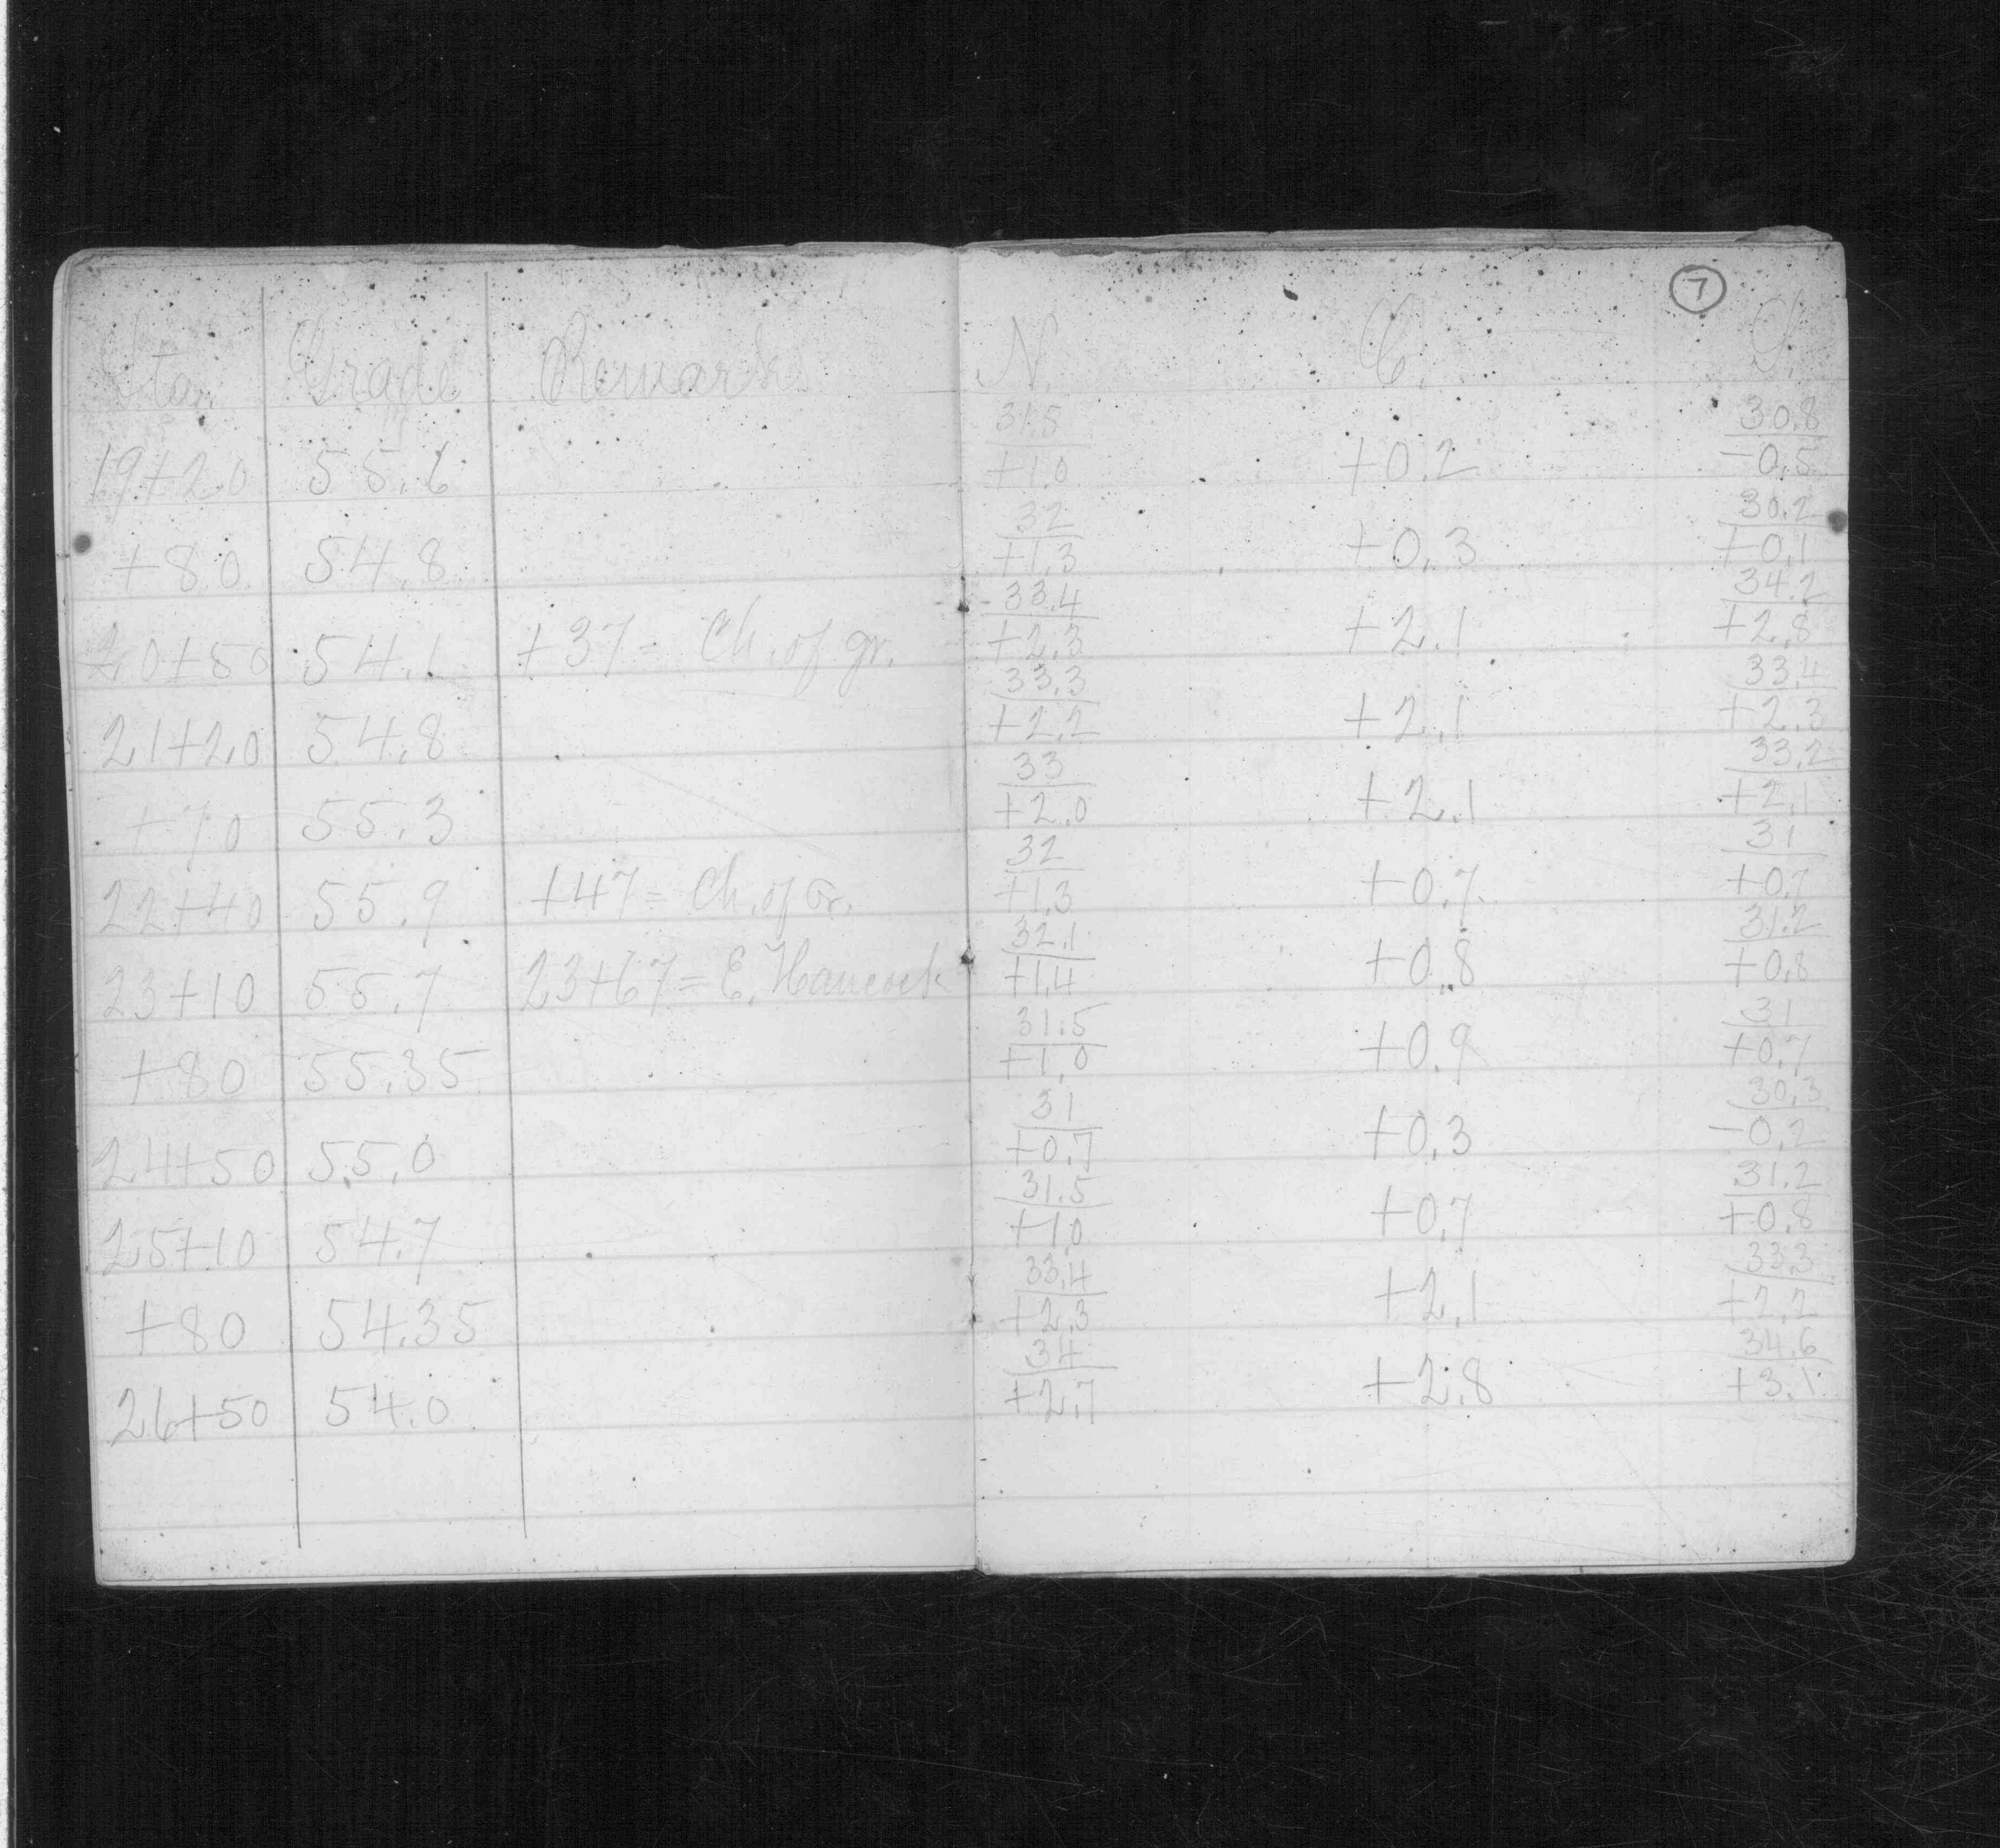 7
Sta. Grade Remarks N. C. S.
31.5 30.8
19+20 55.6 +1.0 +0.2 -0.5
32 30.2
+80 54.8 +1.3 +0.3 +0.1
33.4 34.2
20+50 54.1 +37= Ch. of gr. +2.3 +2.1 +2.8
33.3 33.4
21+20 54.8 +2.2 +2.1 +2.3
33 33.2
+70 55.3 +2.0 +2.1 +2.1
32 31
22+40 55.9 +47= Ch. of Gr. +1.3 +0.7 +0.7
32.1 31.2
23+10 55.7 23+67= E. Hancock +1.4 +0.8 +0.8
31.5 31
+80 55.35 +1.0 +0.9 +0.7
31 30.3
24+50 55.0 +0.7 +0.3 -0.2
31.5 31.2
25+10 54.7 +1.0 +0.7 +0.8
33.4 33.3
+80 54.35 +2.3 +2.1 +2.2
34 34.6
26+50 54.0 +2.7 +2.8 +3.1